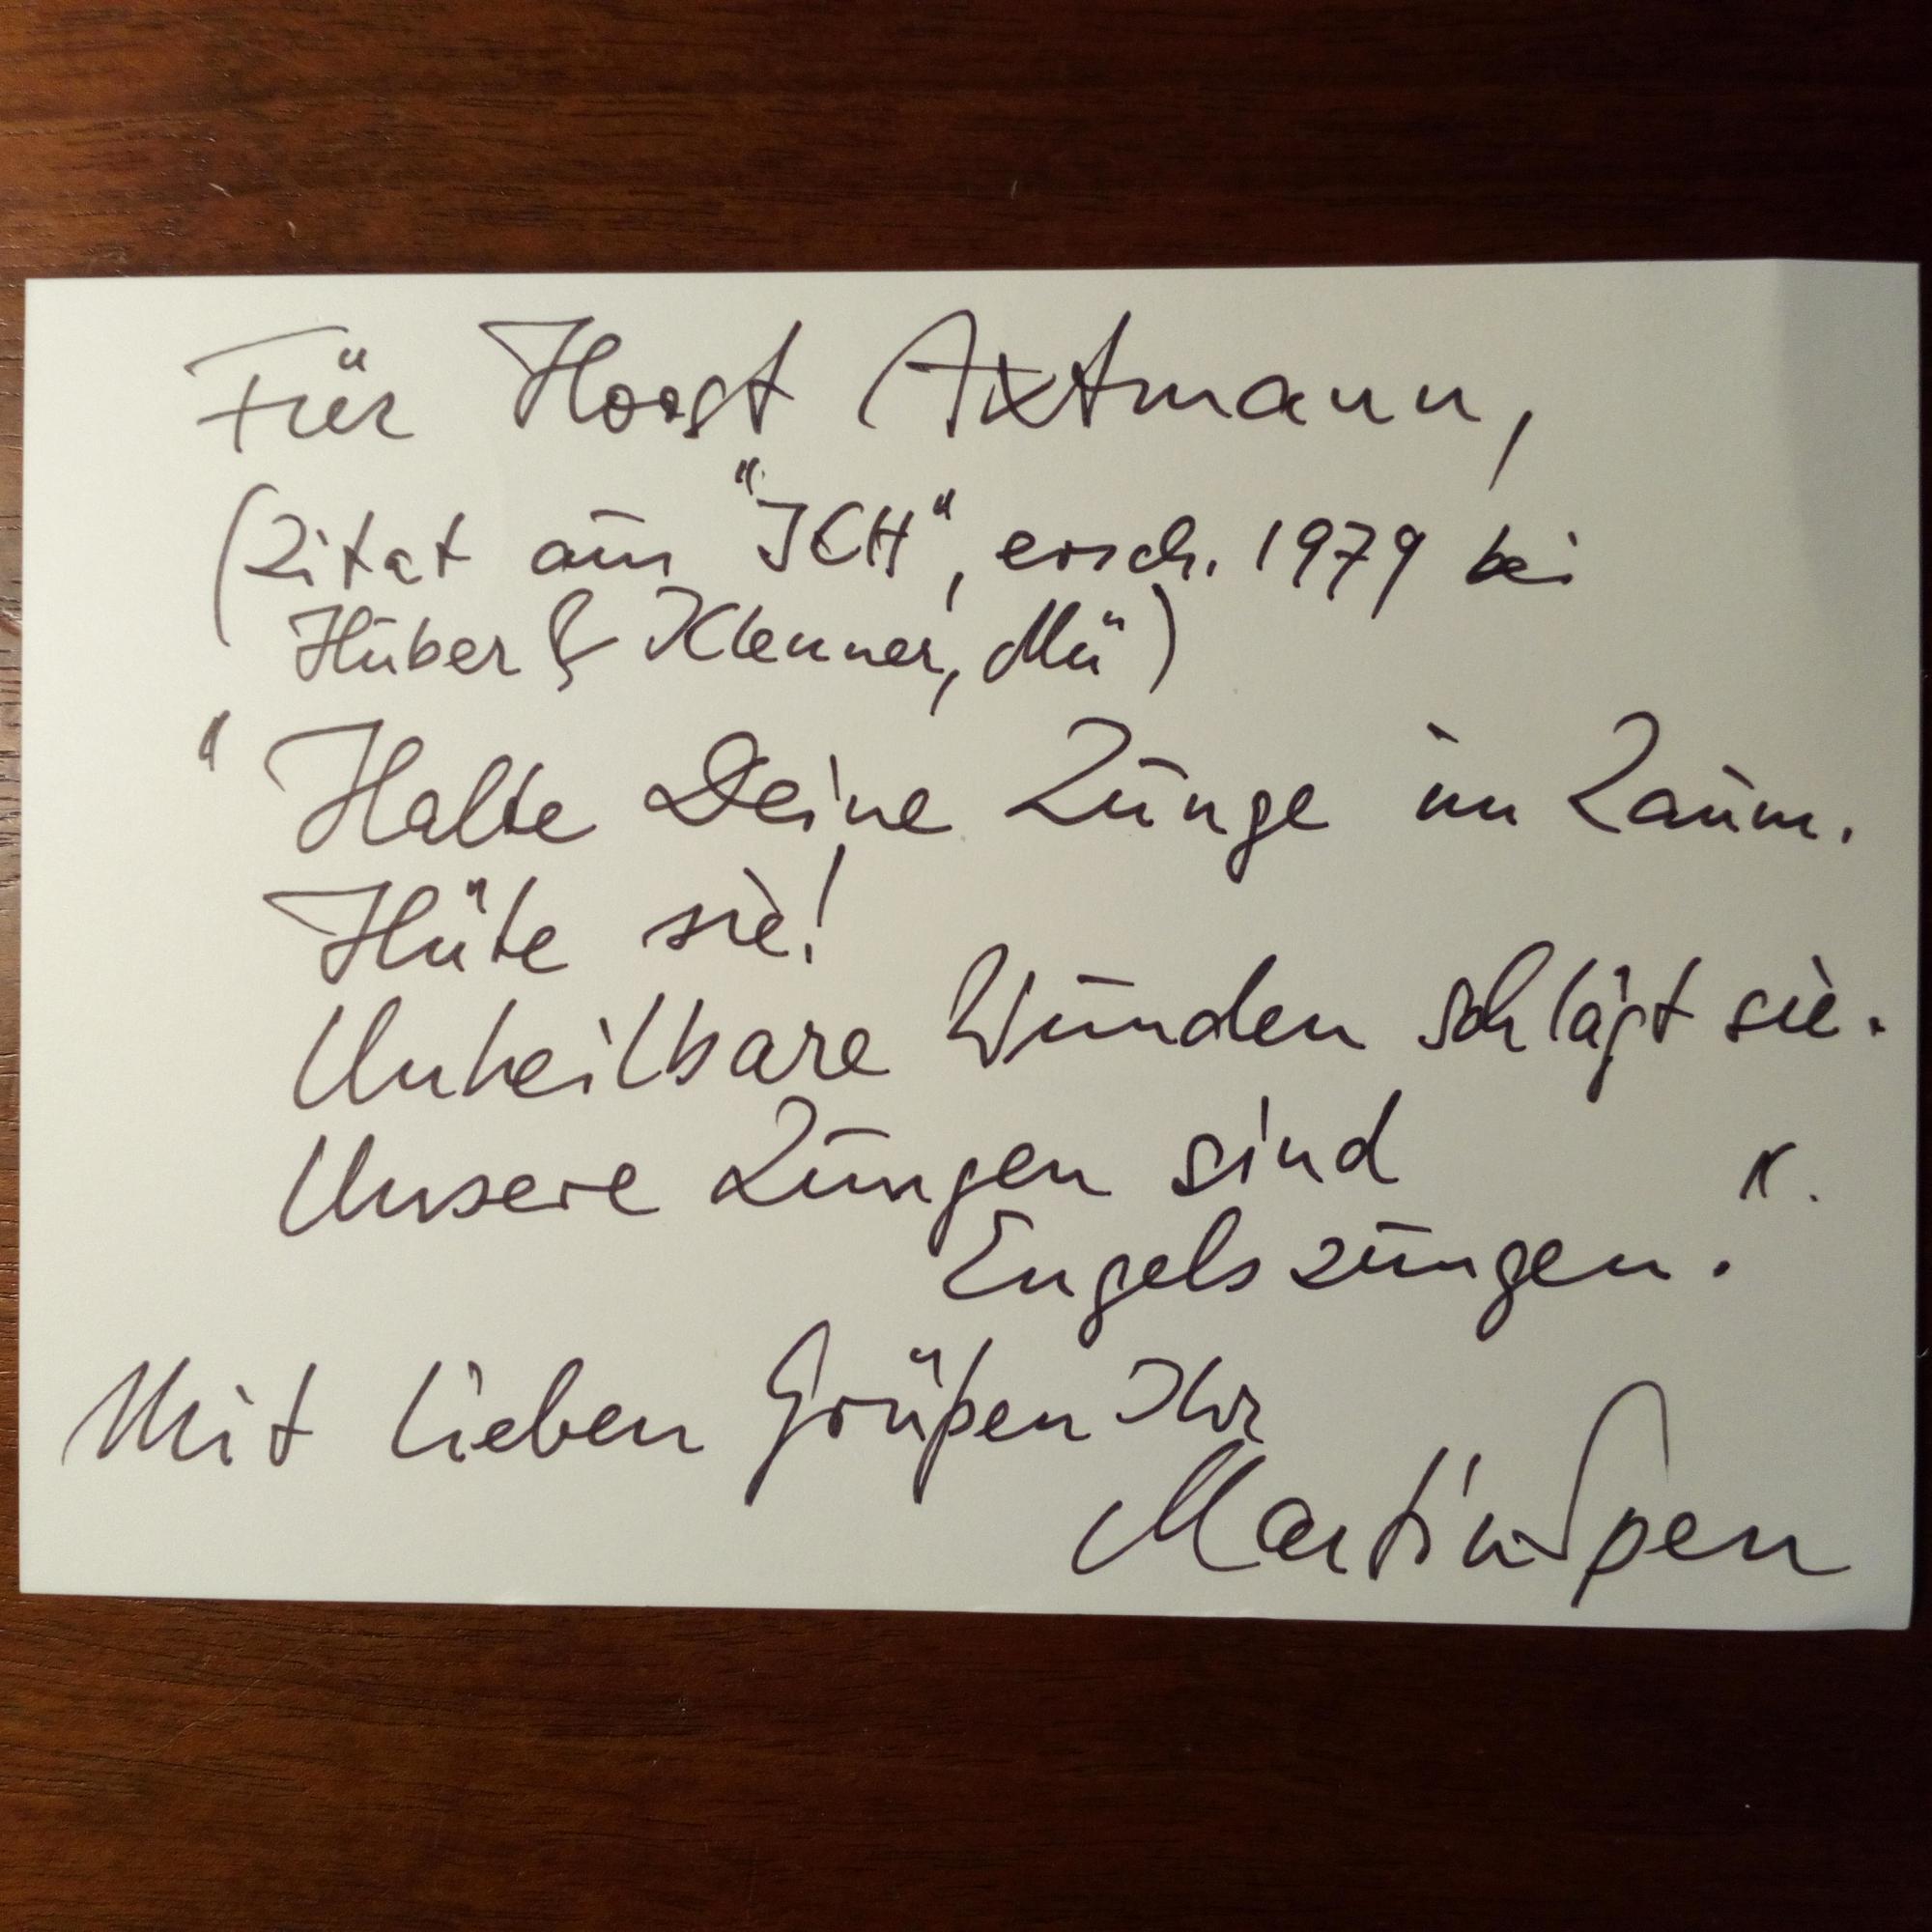 Für Horst Axtmann,
(Zitat aus "ICH", ersch. 1979 bei
Huber & Klenner, Mü)
"Halte Deine Zunge im Zaum.
Hüte sie!
Unheilbare Wunden schlägt sie.
Unsere Zungen sind
Engelszungen."
Mit lieben Grüßen Ihr
Martin Sperr